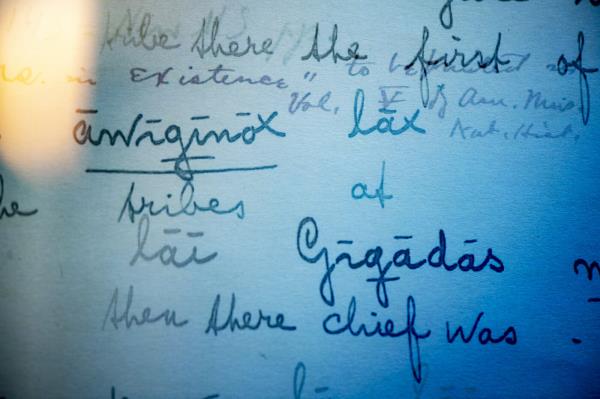 tribe there the first of
in existence" to be
Vol. V of Am. Mus.
Nat. Hist.
āwīgīnōx lāx
tribes at
lāi Gīgādās
then there chief was